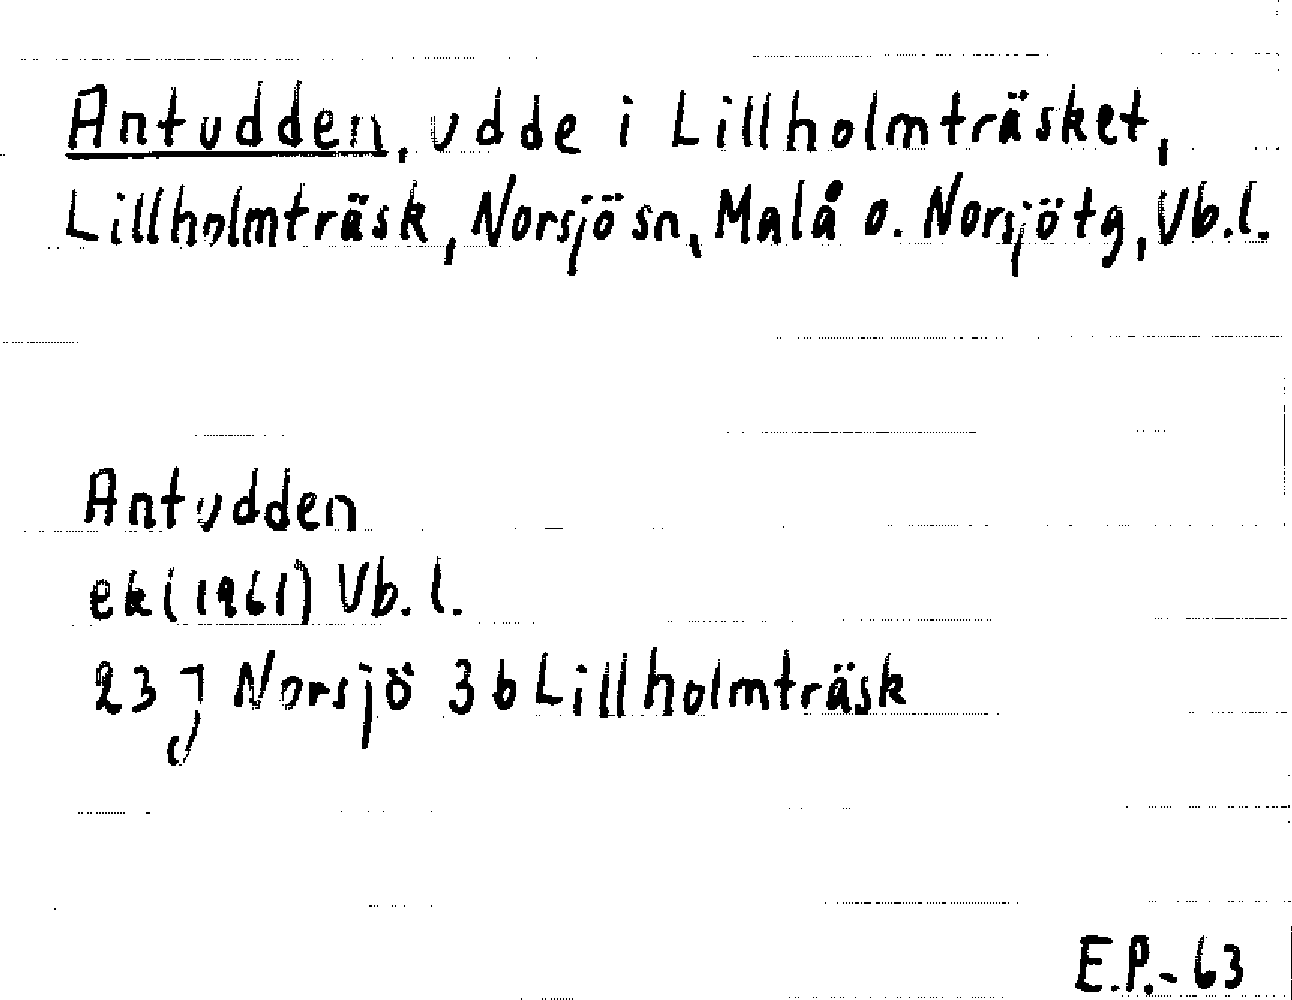 Antudden, udde i Lillholmträsket,
Lillholmträsk, Norsjö sn, Malå o. Norsjö tg, Vb.l.
Antudden
ek (1961) Vb.l.
23 J Norsjö 3 b Lillholmträsk
E.P.-63